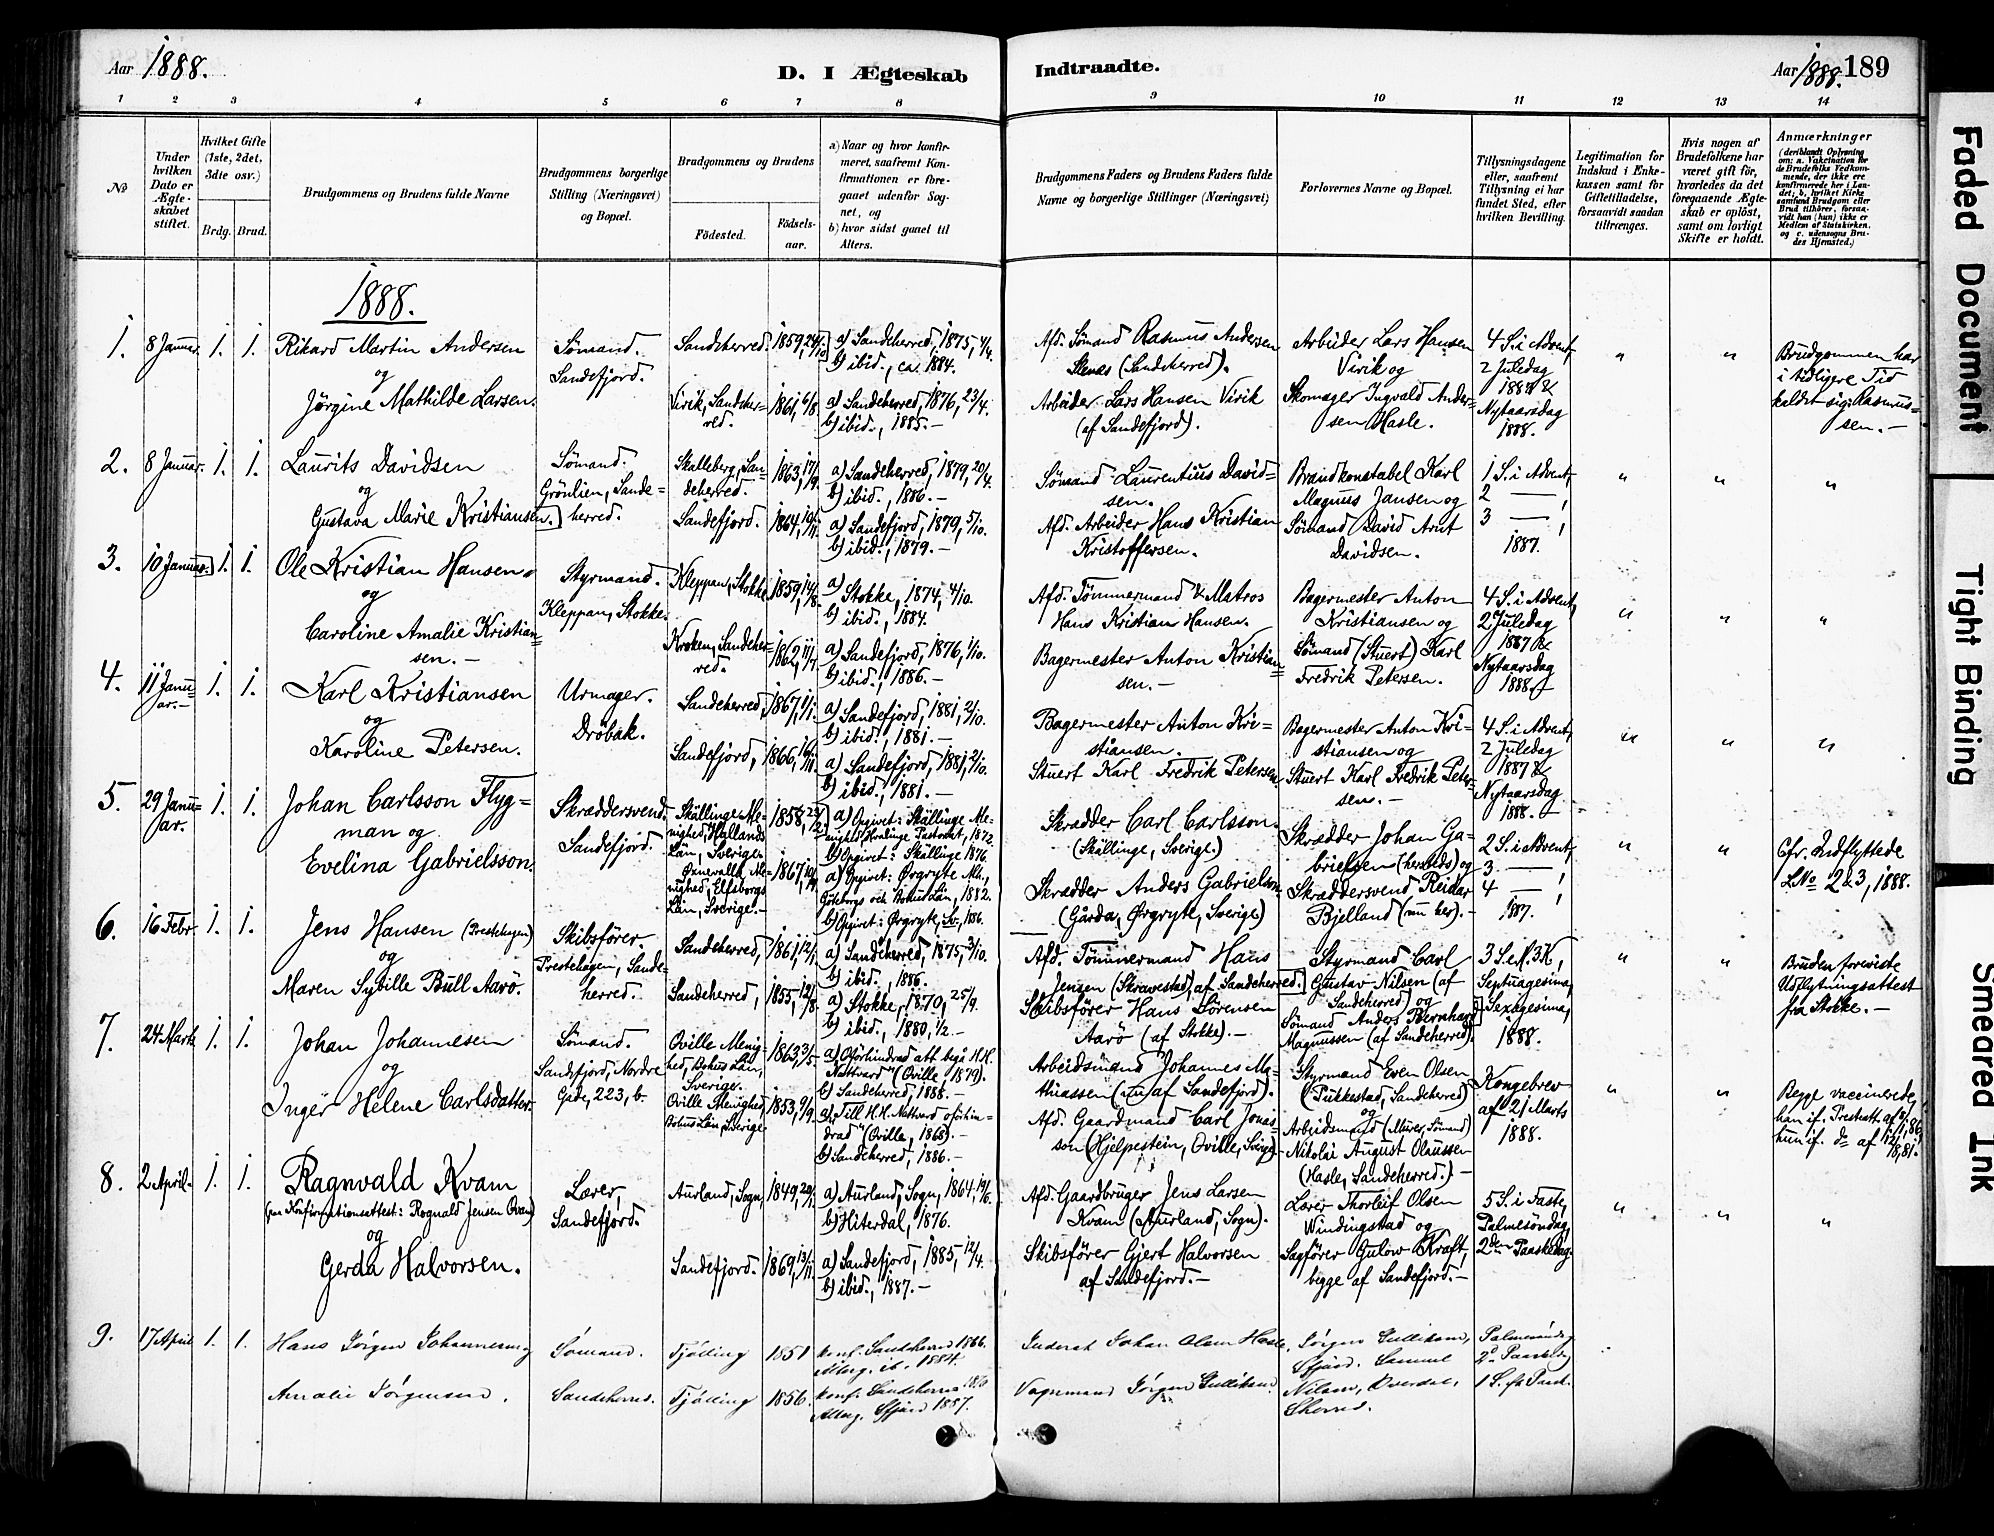 Aar 1888.
D. I Ægteskab
Indtraadte.
Aar 1888. 189
1 2 3 4 5 6 7 8 9 10 11 12 13 14
No
Under hvilken Dato er Ægteskabet stiftet.
Hvilket Gifte (1ste, 2det, 3die osv.)
Brdg. Brud.
Brudgommens og Brudens fulde Navne
Brudgommens borgerlige Stilling (Næringsvei) og Bopæl.
Brudgommens og Brudens
Fødested.
Fødselsaar.
a) Naar og hvor konfirmeret, saafremt Konfirmationen er foregaaet udenfor Sognet, og
b) hvor sidst gaaet til Alters.
Brudgommens Faders og Brudens Faders fulde Navne og borgerlige Stillinger (Næringsvei)
Forlovernes Navne og Bopæl.
Tillysningsdagene eller, saafremt Tillysning ei har fundet Sted, efter hvilken Bevilling.
Legitimation for Indskud i Enkekassen samt for Giftetilladelse, forsaavidt saadan tiltrænges.
Hvis nogen af Brudefolkene har været gift før, hvorledes da det foregaaende Ægteskab er opløst, samt om lovligt Skifte er holdt.
Anmærkninger
(deriblandt Oplysning om: a. Vakcination for de Brudefolks Vedkommende, der ikke ere konfirmerede her i Landet; b. hvilket Kirkesamfund Brudgom eller Brud tilhører, forsaavidt han (hun) ikke er Medlem af Statskirken, og c. udensogns Brudes Hjemsted.)
1888.
1. 8 Januar. 1. 1. Rikard Martin Andersen
og
Jørgine Mathilde Larsen.
Sømand.
Sandefjord.
Sandeherred. 1859, 24/10
a) Sandeherred, 1875, 4/4.
b) ibid., ca. 1884.
Virik, Sandeherred. 1861, 6/8.
a) Sandeherred, 1876, 23/4.
b) ibid., 1885.-
Afd. Sømand Rasmus Andersen
(Sandeherred).
Arbeider Lars Hansen Virik
(af Sandefjord).
Arbeider Lars Hansen
Virik og
Skomager Ingvald Andersen Hasle.
4 S. i Advent,
2 Juledag
1887 &
Nytaarsdag
1888.
" "
Brudgommen har
i tidligere Tid
kaldt sig: Rasmussen.-
2. 8 Januar. 1. 1. Laurits Davidsen
og
Gustava Marie Kristiansen.
Sømand.
Grönlien, Sandeherred.
Skalleberg, Sandeherred. 1863, 17/9.
a) Sandeherred, 1879, 20/4.
b) ibid., 1886.-
Sandefjord. 1864, 10/11.
a) Sandefjord, 1879, 5/10.
b) ibid., 1879.-
Sømand Laurentius Davidsen.
Afd. Arbeider Hans Kristian
Kristoffersen.
Brandkonstabel Karl
Magnus Jansen og
Sømand David Arnt
Davidsen.
1 S. i Advent,
2 — ,
3 — ,
1887.
" " "
3. 10 Januar. 1. 1. Ole Kristian Hansen
og
Caroline Amalie Kristiansen.-
Styrmand.
Kleppan, Stokke.
Kleppan, Stokke 1859, 14/8.
a) Stokke, 1874, 4/10.
b) ibid., 1884.
Kroken, Sandeherred. 1862, 11/7.
a) Sandefjord, 1876, 1/10.
b) ibid., 1886.-
Afd. Tömmermand & Matros
Hans Kristian Hansen.
Bagermester Anton Kristiansen.-
Bagermester Anton
Kristiansen og
Sømand (Stuert) Karl
Fredrik Petersen.
4 S. i Advent,
2 Juledag
1887 &
Nytaarsdag
1888.
" " "
4. 11 Januar.- 1. 1. Karl Kristiansen
og
Karoline Petersen.
Urmager.
Dröbak.
Sandeherred, 1867, 1/1.
a) Sandefjord, 1881, 2/10.
b) ibid., 1881.-
Sandefjord, 1866, 16/11.
a) Sandefjord, 1881, 2/10.
b) ibid., 1881.-
Bagermester Anton Kristiansen.
Stuert Karl Fredrik Petersen
Bagermester Anton Kristiansen og
Stuert Karl Fredrik Petersen.-
4 S. i Advent,
2 Juledag
1887 &
Nytaarsdag
1888.-
" " "
5. 29 Januar. 1. 1. Johan Carlsson Flygman og
Evelina Gabrielsson.
Skræddersvend.
Sandefjord.
Skällinge Menighed, Hallands
Län, Sverige. 1858, 23/2
a) Opgivet: Skällinge Menighed, Himlinge Pastorat, 1872.
b) Opgivet: Skällinge 1876.
Öxnevalla Menighed, Elfsborgs
Län, Sverige.- 1867, 10/4.
a) Opgivet: Ørgryte Mh.,
Göteborgs och Bohus Län, 1882.
b) Opgivet: Ørgryte, Sv., 1886.
Skrædder Carl Carlsson
(Skällinge, Sverige.)
Skrædder Anders Gabrielson
(Gårda, Ørgryte, Sverige)
Skrædder Johan Gabrielsen (herreds) og
Skræddersvend Reidar
Bjelland (nu her).-
2 S. i Advent,
3 —
4 — ,
1887.
" "
Cfr. Indflyttede
LNo 2 & 3, 1888.
6. 16 Febr. 1. 1. Jens Hansen (Prestehagen)
og
Maren Sybille Bull Aarö.
Skibsfører.
Prestehagen, Sandeherred.
Sandeherred, 1861, 12/1.
a) Sandeherred, 1875, 3/10.
b) ibid., 1886.
Sandeherred, 1855, 12/8.
a) Stokke, 1870, 25/9.
b) ibid., 1880, 1/2.-
Afd. Tömmermand Hans
Jensen (Skravestad, af Sandeherred.
Skibsfører Hans Sörensen
Aarö (af Stokke).-
Styrmand Carl
Gustav Nilsen (af
Sandeherred) og
Sømand Anders Bernhard
Magnussen (af Sandeherred).
3 S. e. H. 3 K,
Septuagesima,
Sexagesima,
1888.
" "
Bruden foreviste
Udflytningsattest
fra Stokke.-
7. 24 Marts 1. 1. Johan Johannesen
og
Inger Helene Carlsdatter.
Sømand.
Sandefjord, Nordre
Gade, 223, b.
Oville Menighed, Bohus Län,
Sverige. 1863, 3/5.
a) "Oförhindrad att begå H. H.
Nattvard" (Oville 1879).
b) Sandeherred, 1888.-
Oville Menighed,
Bohus Län, Sverige. 1853, 9/9.
a) "Till H. H. Nattvard oförhindrad" (Oville, 1868).-
b) Sandeherred, 1886.-
Arbeidsmand Johannes Mathiassen (nu af Sandefjord).
Afd. Gaardmand Carl Jonasson (Hjelpestein, Oville, Sverige).
Styrmand Even Olsen
(Pukkestad, Sandeherred)
og
Arbeidsmand (Murer, Sömand)
Nikolai August Olaussen
(Hasle, Sandeherred.)-
Kongebrev
af 21 Marts
1888.
" "
Begge vaccinerede,
han if. Prestatt. af
hun if. do af 12/8, 81.
8. 2 April. 1. 1. Ragnvald Kvam
(paa Konfirmationsattest: Rognald Jensen Qvam)
og
Gerda Halvorsen.
Lærer,
Sandefjord.
Aurland, Sogn, 1849, 29/1.
a) Aurland, Sogn, 1864, 19/6.
b) Hiterdal, 1876.
Sandefjord. 1869, 13/11.
a) Sandefjord, 1885, 12/4.
b) ibid., 1887.-
Afd. Gaardbruger Jens Larsen
Kvam (Aurland, Sogn).
Skibsfører Gjert Halvorsen
af Sandefjord.-
Lærer Thorleif Olsen
Windingstad og
Sagfører Gulow Kraft,
begge af Sandefjord.-
5 S. i Faste,
Palmesöndag,
2den Paaskedag.
" " "
9. 17 April 1. 1. Hans Jørgen Johannesen og
Amalie Jørgensen.
Sømand.
Sandeherred.
Tjølling 1851
konf. Sandeherred 1866.
Alterg. ib. 1884.
Tjølling 1856.
konf. Sandeherred
Alterg. Sfjord 1887.
Inderst Johan Olsen Hasle,
Vognmand Jørgen Gulliksen
Jørgen Gulliksen,
Sfjord. Samuel
Nilsen,
Sherred.
Palmesöndag
2 Paaskedag
1 S. e. Paask.
Faded Document
Tight Binding
Smeared Ink